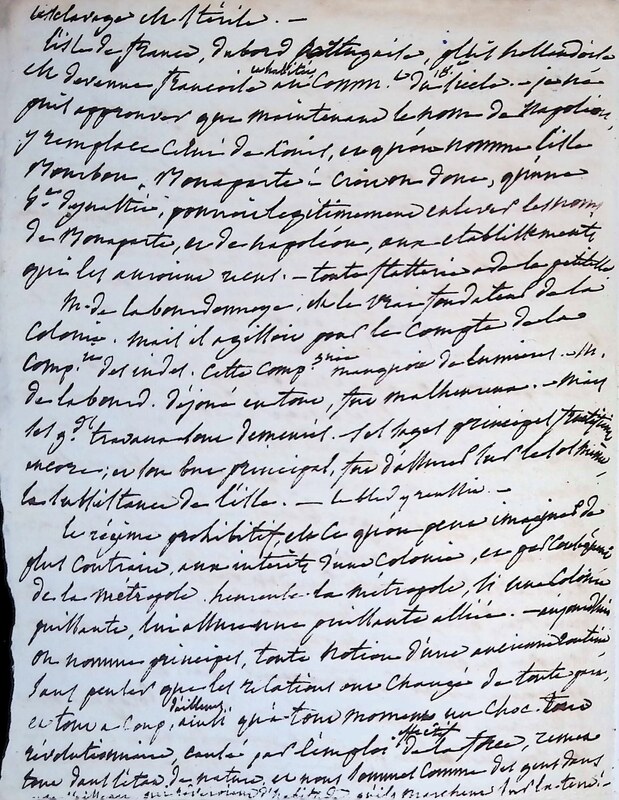 l'esclavage est stérile. —
L'isle de france, d'abord portugaise, puis hollandoise
est devenue françoise et habitée au comm.t du 18.e siecle. — je ne
puis approuver que maintenant le nom de Napoléon,
y remplace celui de Louis, et qu'on nomme l'isle
Bourbon, Bonaparte — croit on donc, qu'une
4.e dynastie, pourroit legitimement enlever les noms
de Bonaparte, et de napoléon, aux etablissements
qui les auroient reçus. — toute flatterie a de la petitesse
M. de la bourdonnaye, est le vrai fondateur de la
Colonie. mais il agissoit pour le compte de la
Comp.ie des indes. Cette comp.ie manquoit de lumieres. — M.
de labourd. déjoué en tout, fut malheureux. — mais
ses g.ds travaux sont demeurés. ses sages principes
encore; et son but principal, fut d'assurer sur le sol même,
la subsistance de l'isle. — le bled y reussit. —
le régime prohibitif, est ce qu'on peut imaginer de
plus contraire, aux interêts d'une colonie, et par conséquent
de la métropole. heureuse la métropole, si une colonie
puissante, lui assure une puissante alliée. — aujourd'hui
on nomme principes, toute notion d'une ancienne routine
sans penser que les relations ont changé de toute part,
et tout a coup, d'ailleurs, ainsi qu'à tout moment, un choc tout
révolutionnaire, causé par l'emploi effectif de la force, remet
tout dans l'état de nature, et nous sommes comme des gens dans